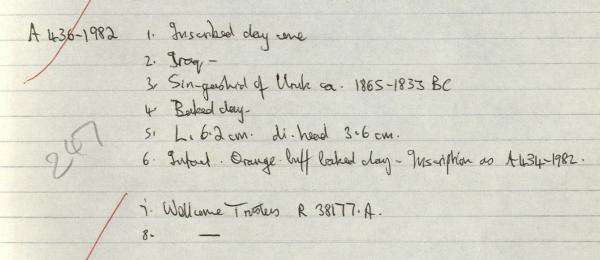 A 436-1982 1. Inscribed clay cone
2. Iraq -
3. Sin-gashid of Uruk ca. 1865-1833 BC
4. Baked clay-
5. L. 6.2 cm. di. head 3.6 cm.
247
6. Intact. Orange buff baked clay - Inscription as A434-1982.
7. Wellcome Trustees R 38177.A.
8. —